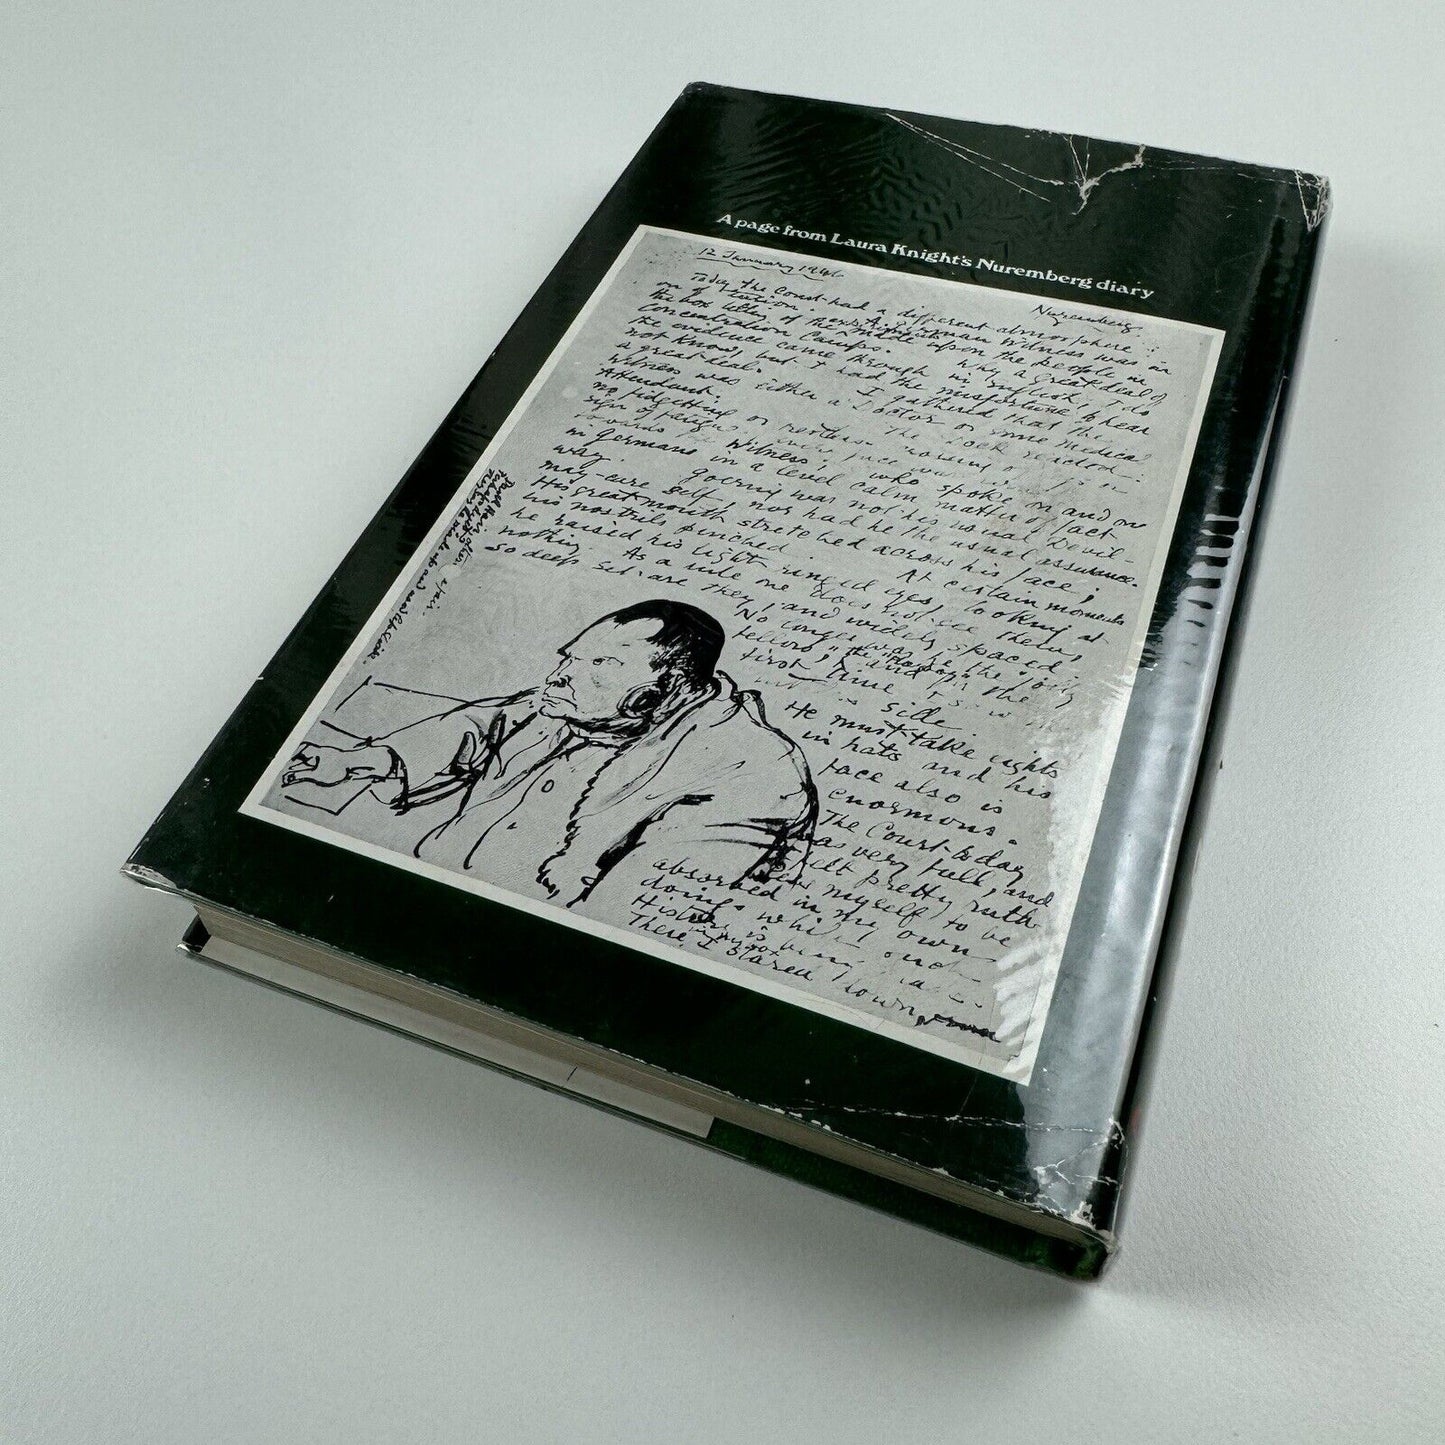 A page from Laura Knight's Nuremberg diary
12 January 1946
Nuremberg.
Today the Court had a different atmosphere :
A German Witness was in
the box telling of the experiments made upon the people in
Concentration Camps. Why a great deal of
the evidence came through in English, I do
not know, but I had the misfortune to hear
a great deal. I gathered that the
Witness was either a Doctor or some medical
Attendant. The Dock reacted :
no fidgetting or restless
sign of fatigue, every face was
towards the Witness, who spoke on and on
in German in a level calm matter of fact
way. Goering was not his usual Devil-
may-care self, nor had he the usual assurance.
His great mouth stretched across his face ;
his nostrils pinched. At certain moments
he raised his light ringed eyes, looking at
nothing. As a rule one does not see them,
so deep set are they, and widely spaced
No longer was he the jolly
fellow, and the
first time I saw
side
He must take eights
in hats and his
face also is
enormous.
The Court today
was very full, and
I felt pretty ruth-
less myself, to be
absorbed in my own
doings while
History is being
There in my box I stared down